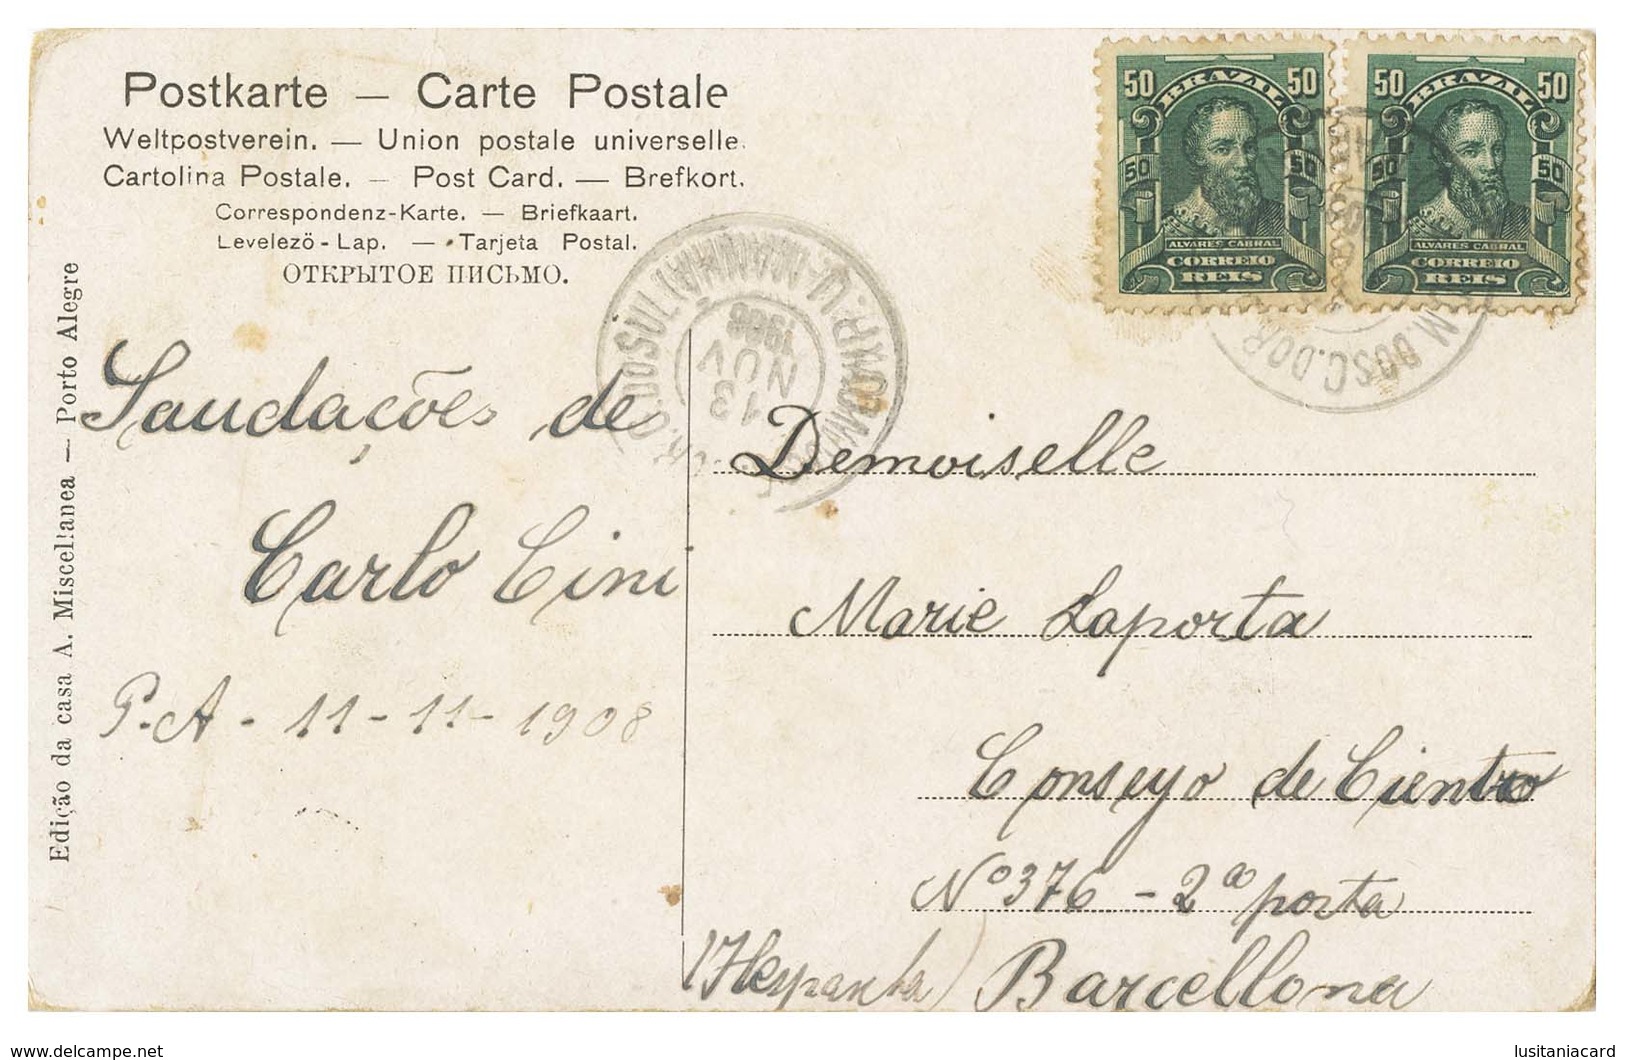 Postkarte — Carte Postale
Weltpostverein. — Union postale universelle.
Cartolina Postale. — Post Card. — Brefkort.
Correspondenz-Karte. — Briefkaart.
Levelezö-Lap. — Tarjeta Postal.
ОТКРЫТОЕ ПИСЬМО.
50 BRAZIL 50
50 50
ALVARES CABRAL
CORREIO
REIS
50 BRAZIL 50
50 50
ALVARES CABRAL
CORREIO
REIS
13
NOV
1908
Edição da casa A. Miscellanea — Porto Alegre
Saudações de
Carlo Cini
P.A - 11-11-1908
Demoiselle
Marie Laporta
Conseyo de Ciento
Nº 376 - 2ª porta
(Hespanha) Barcellona
delcampe.net
lusitaniacard